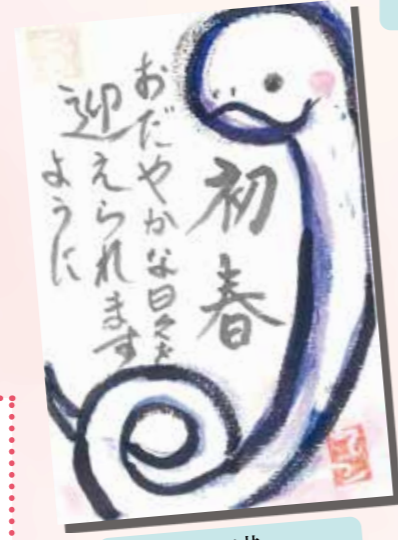 初春
おだやかな日々を
迎えられます
ように